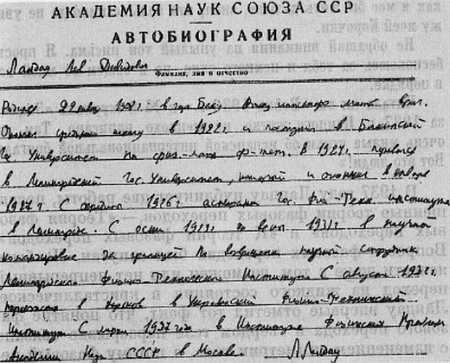 АКАДЕМИЯ НАУК СОЮЗА ССР
АВТОБИОГРАФИЯ
Ландау Лев Давидович
Фамилия, имя и отчество
Родился 22 янв. 1908 г. в гор. Баку. Отец инженер мать врач.
Окончил среднюю школу в 1922 г и поступил в Бакинский
Гос Университет на физ-мат ф-тет. В 1924 г. перевелся
в Ленинградский Гос. Университет, который и окончил в январе
1927 г. С 1926 г. аспирант Гос. Физ-Техн. института
в Ленинграде. С осени 1929 г. по весну 1931 г. в научной
командировке за границей. По возвращении научный сотрудник
Ленинградского Физико-Технического Института С августа 1932 г.
в Харьков в Украинский Физико-Технический
Институт С 1937 года в Институте Физических Проблем
Академии Наук СССР в Москве. Л. Ландау